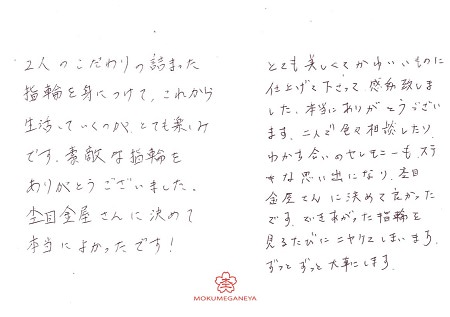 2人のこだわりの詰まった
指輪を身につけて、これから
生活していくのが、とても楽しみ
です。素敵な指輪を
ありがとうございました。
杢目金屋さんに決めて
本当によかったです！
とても美しくてかわいいものに
仕上げて下さって感動致しま
した。本当にありがとうござい
ます。二人で色々相談したり、
わかち合いのセレモニーも、ステ
キな思い出になり、杢目
金屋さんに決めて良かった
です。できあがった指輪を
見るたびにニヤケてしまいます。
ずっとずっと大事にします。
MOKUMEGANEYA